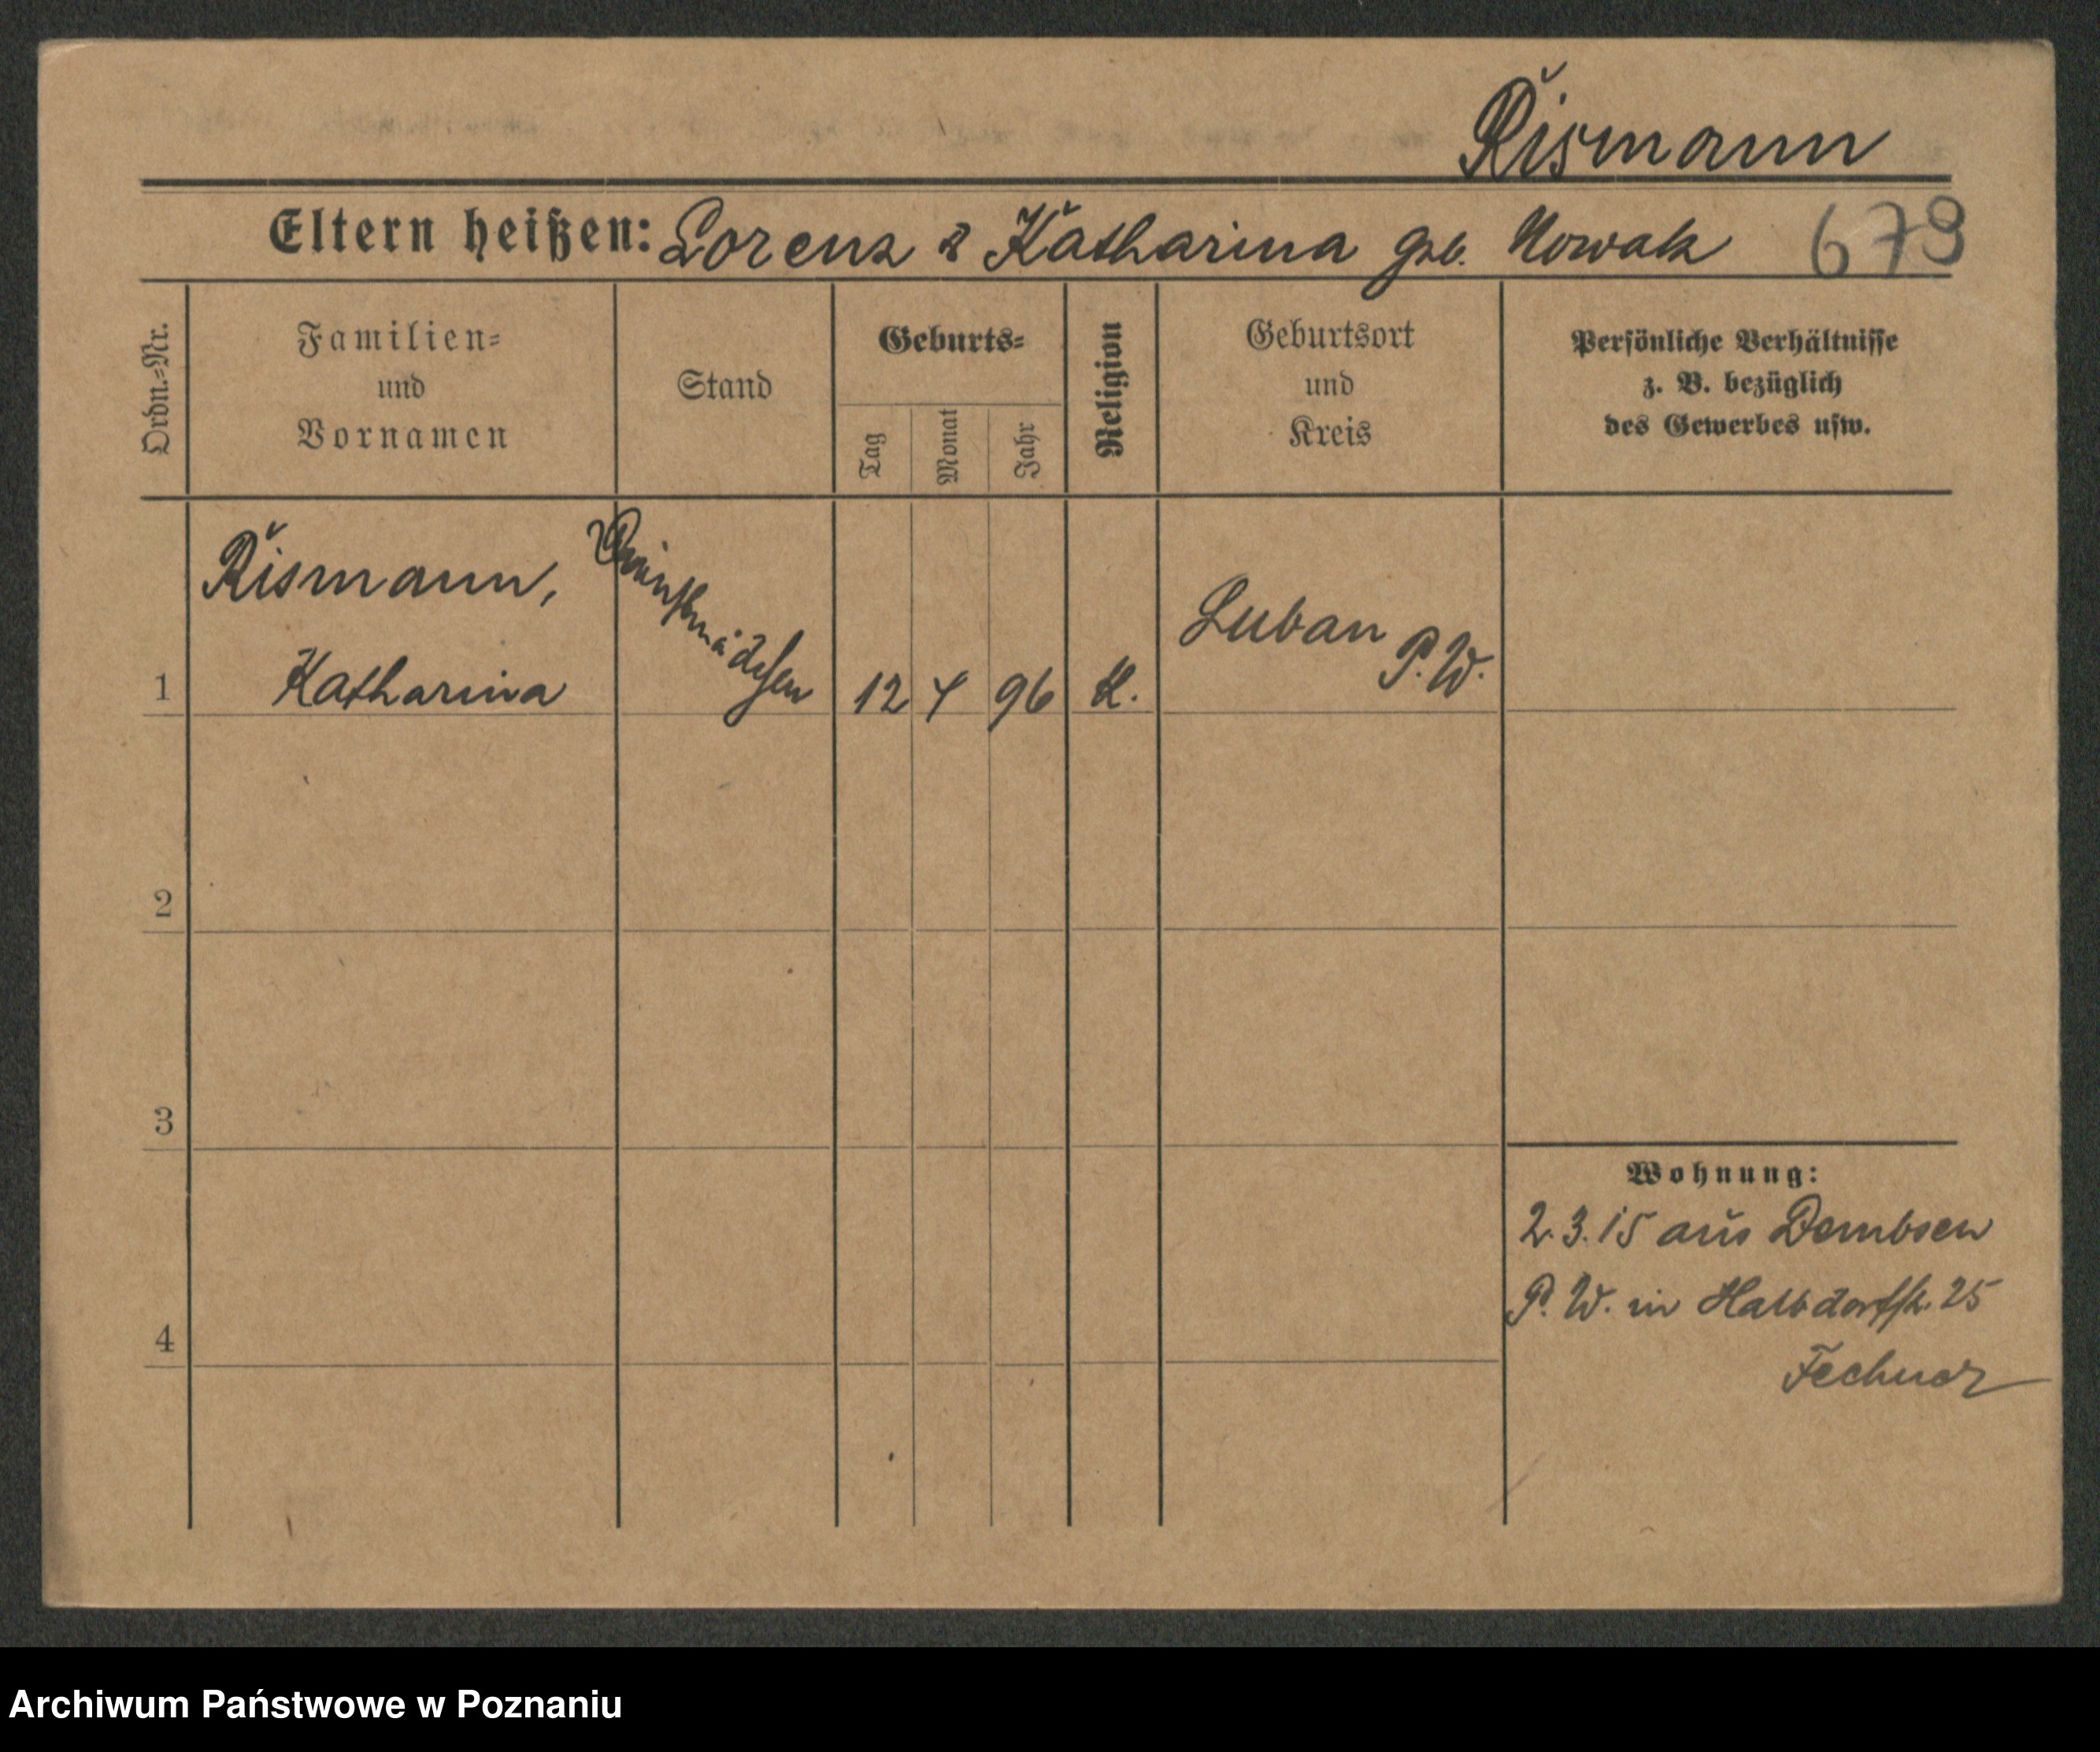 Řismann
Eltern heißen: Lorenz & Katharina geb. Nowak 679
Ordn.=Nr.
Familien=
und
Vornamen
Stand
Geburts=
Tag
Monat
Jahr
Religion
Geburtsort
und
Kreis
Persönliche Verhältnisse
z. B. bezüglich
des Gewerbes usw.
Řismann,
Katharina
Dienstmädchen
1
12 4 96 K.
Luban
P.W.
2
3
4
Wohnung:
2.3.15 aus Dembsen
P. W. in Halbdorfstr. 25
Fechner
Archiwum Państwowe w Poznaniu